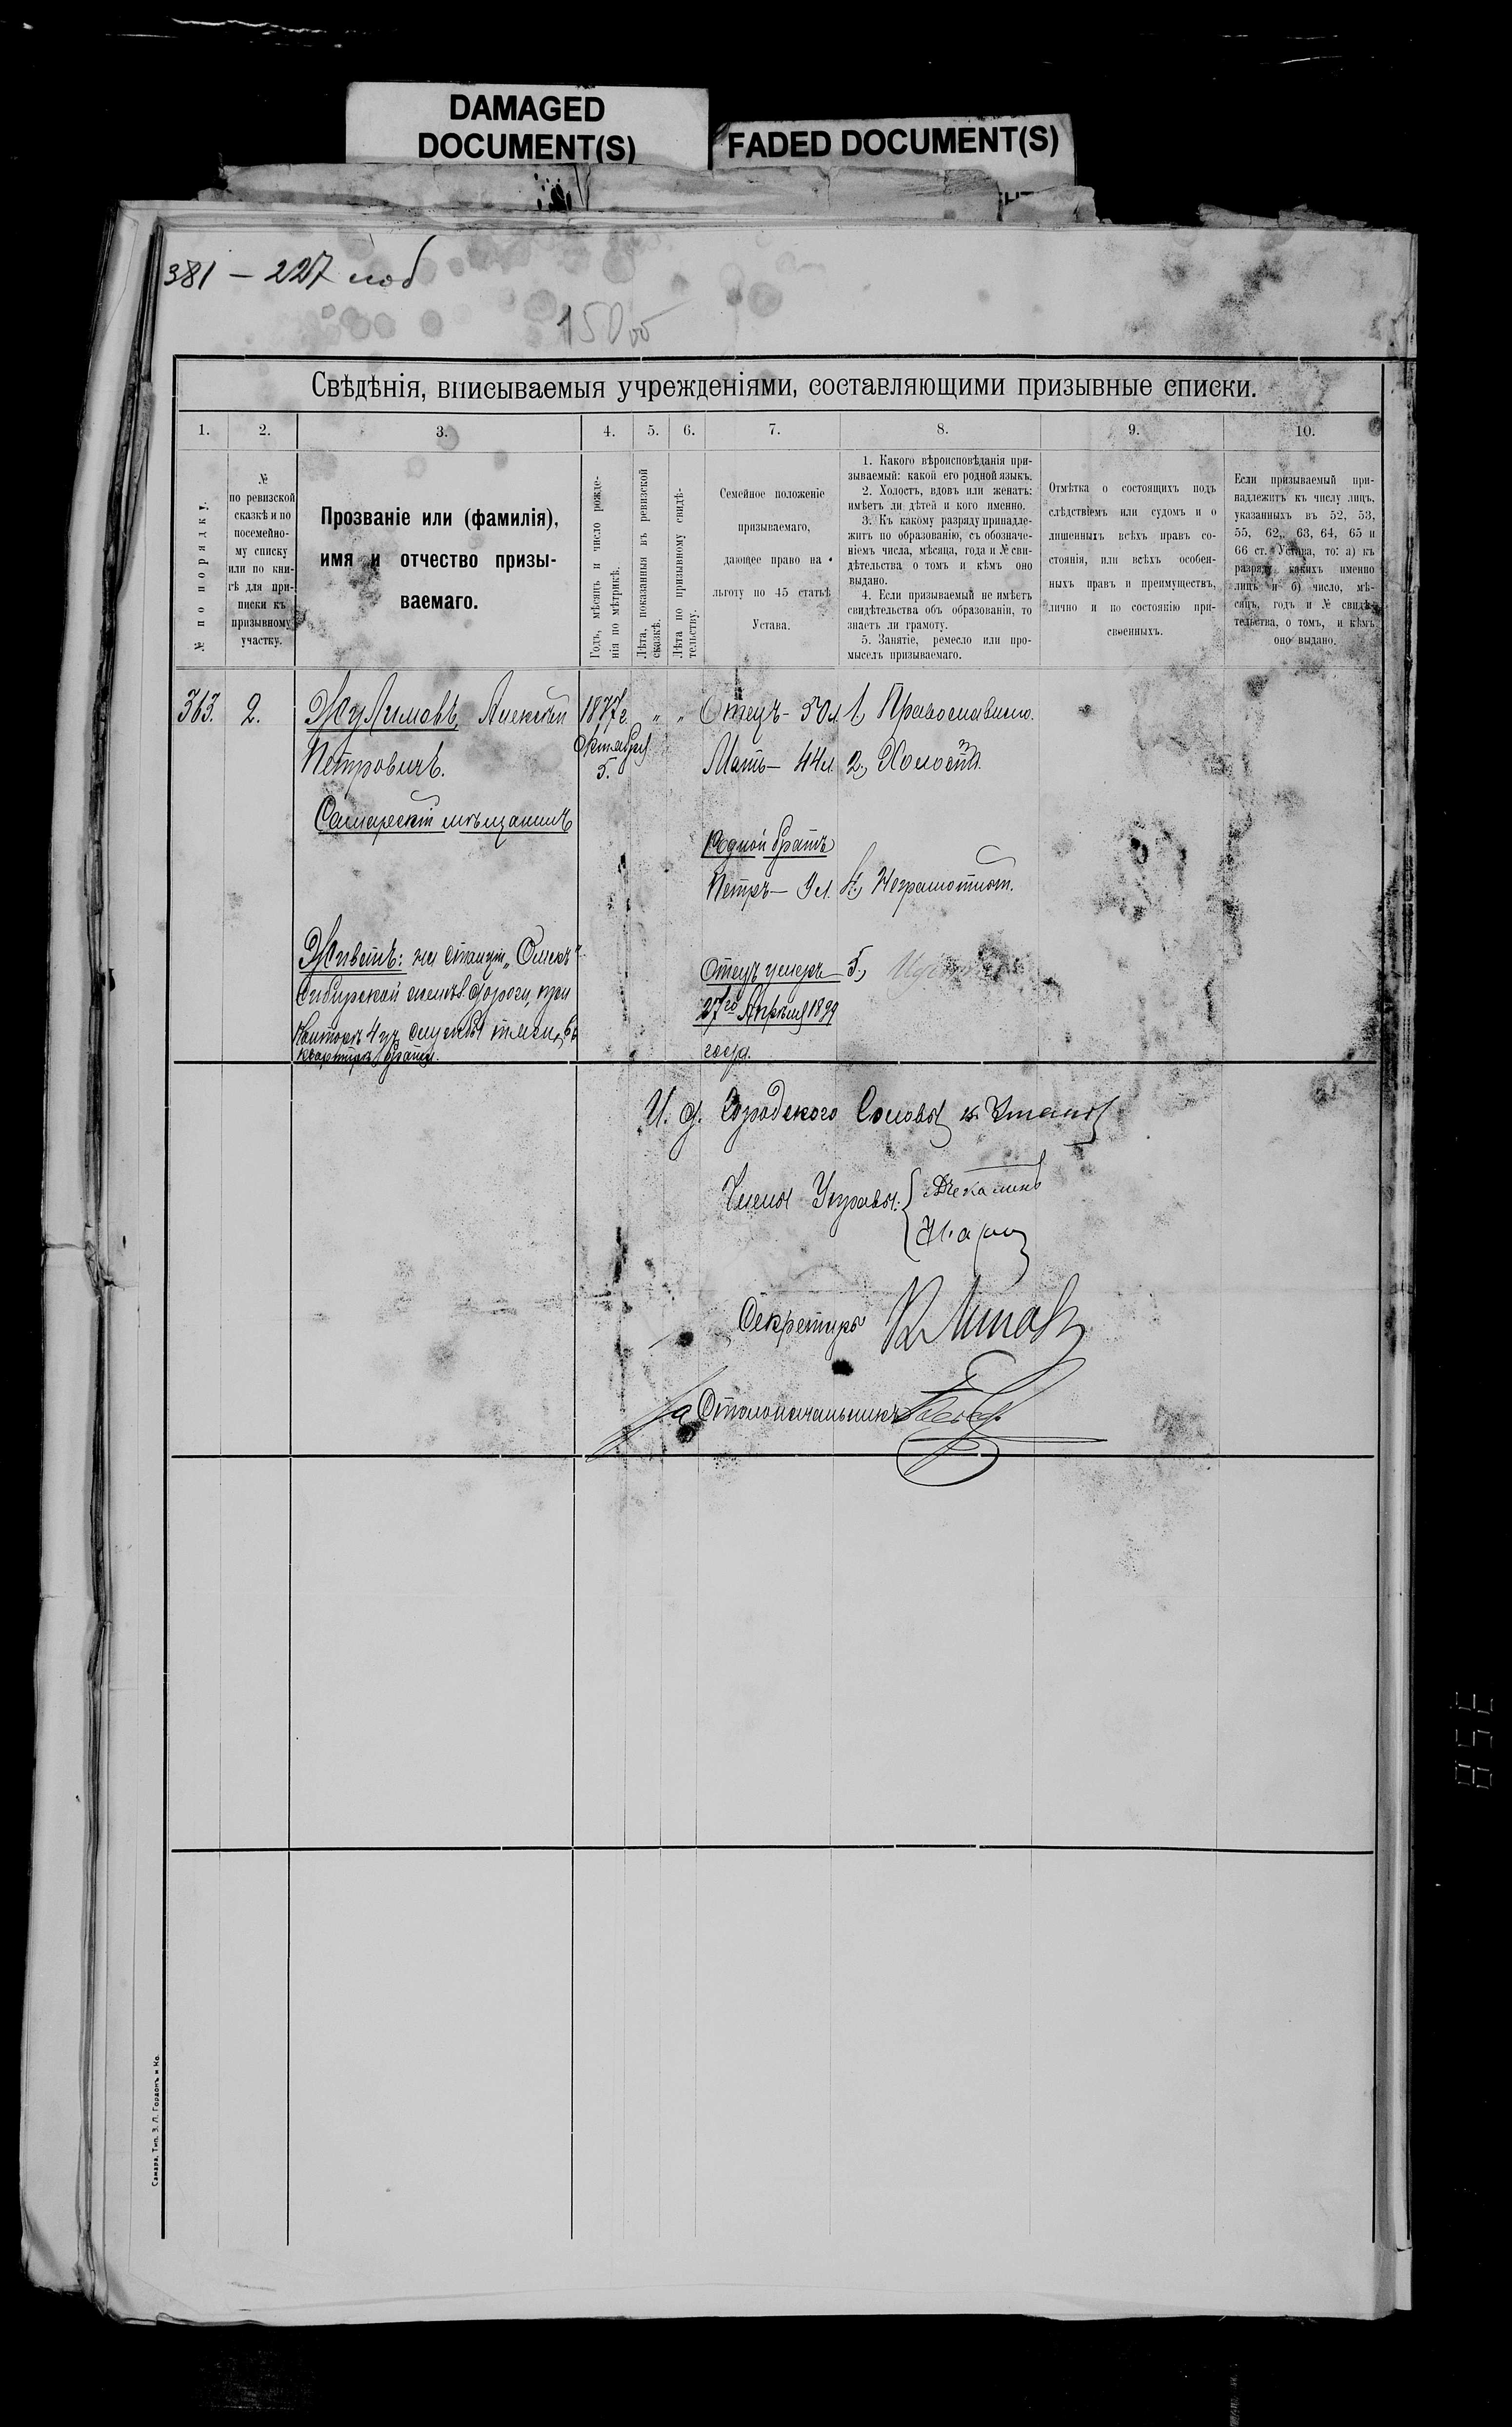 DAMAGED
DOCUMENT(S)
FADED DOCUMENT(S)
381 – 227 моб
Свѣдѣнія, вписываемыя учрежденіями, составляющими призывные списки.
1.
2.
3.
4.
5.
6.
7.
8.
9.
10.
№ по порядку.
№
по ревизской
сказкѣ и по
посемейно-
му списку
или по кни-
гѣ для при-
писки къ
призывному
участку.
Прозваніе или (фамилія),
имя и отчество призы-
ваемаго.
Годъ, мѣсяцъ и число рожде-
нія по мѣтрикѣ.
Лѣта, показанныя въ ревизской
сказкѣ.
Лѣта по призывному свидѣ-
тельству.
Семейное положеніе
призываемаго,
дающее право на
льготу по 45 статьѣ
Устава.
1. Какого вѣроисповѣданія при-
зываемый: какой его родной языкъ.
2. Холостъ, вдовъ или женатъ:
имѣетъ ли дѣтей и кого именно.
3. Къ какому разряду принадле-
житъ по образованію, съ обозначе-
ніемъ числа, мѣсяца, года и № сви-
дѣтельства о томъ и кѣмъ оно
выдано.
4. Если призываемый не имѣетъ
свидѣтельства объ образованіи, то
знаетъ ли грамоту.
5. Занятіе, ремесло или про-
мыселъ призываемаго.
Отмѣтка о состоящихъ подъ
слѣдствіемъ или судомъ и о
лишенныхъ всѣхъ правъ со-
стоянія, или всѣхъ особен-
ныхъ правъ и преимуществъ,
лично и по состоянію при-
своенныхъ.
Если призываемый при-
надлежитъ къ числу лицъ,
указанныхъ въ 52, 53,
55, 62, 63, 64, 65 и
66 ст. Устава, то: а) къ
разряду какихъ именно
лицъ и б) число, мѣ-
сяцъ, годъ и № свидѣ-
тельства, о томъ, и кѣмъ
оно выдано.
363.
2.
Жулимовъ Алексѣй
Петровичъ.
Самарскій мѣщанинъ
Живетъ: на станціи „Омскъ"
Сибирской желѣз. дороги, при
Конторѣ 4 уч. службы тяги, въ
квартирѣ брата.
1877 г.
Октября
5.
" "
Отецъ – 50 л.
Мать – 44 л.
Родной братъ
Петръ – 9 л.
Отецъ умеръ
27го Апрѣля 1899
года.
1, Православнаго.
2, Холостъ.
4, Неграмотн.
5,
И. д. Городского Головы
Члены Управы:
Секретарь
За Столоначальника
Самара, Тип. З. Л. Гордонъ и Ко.
358